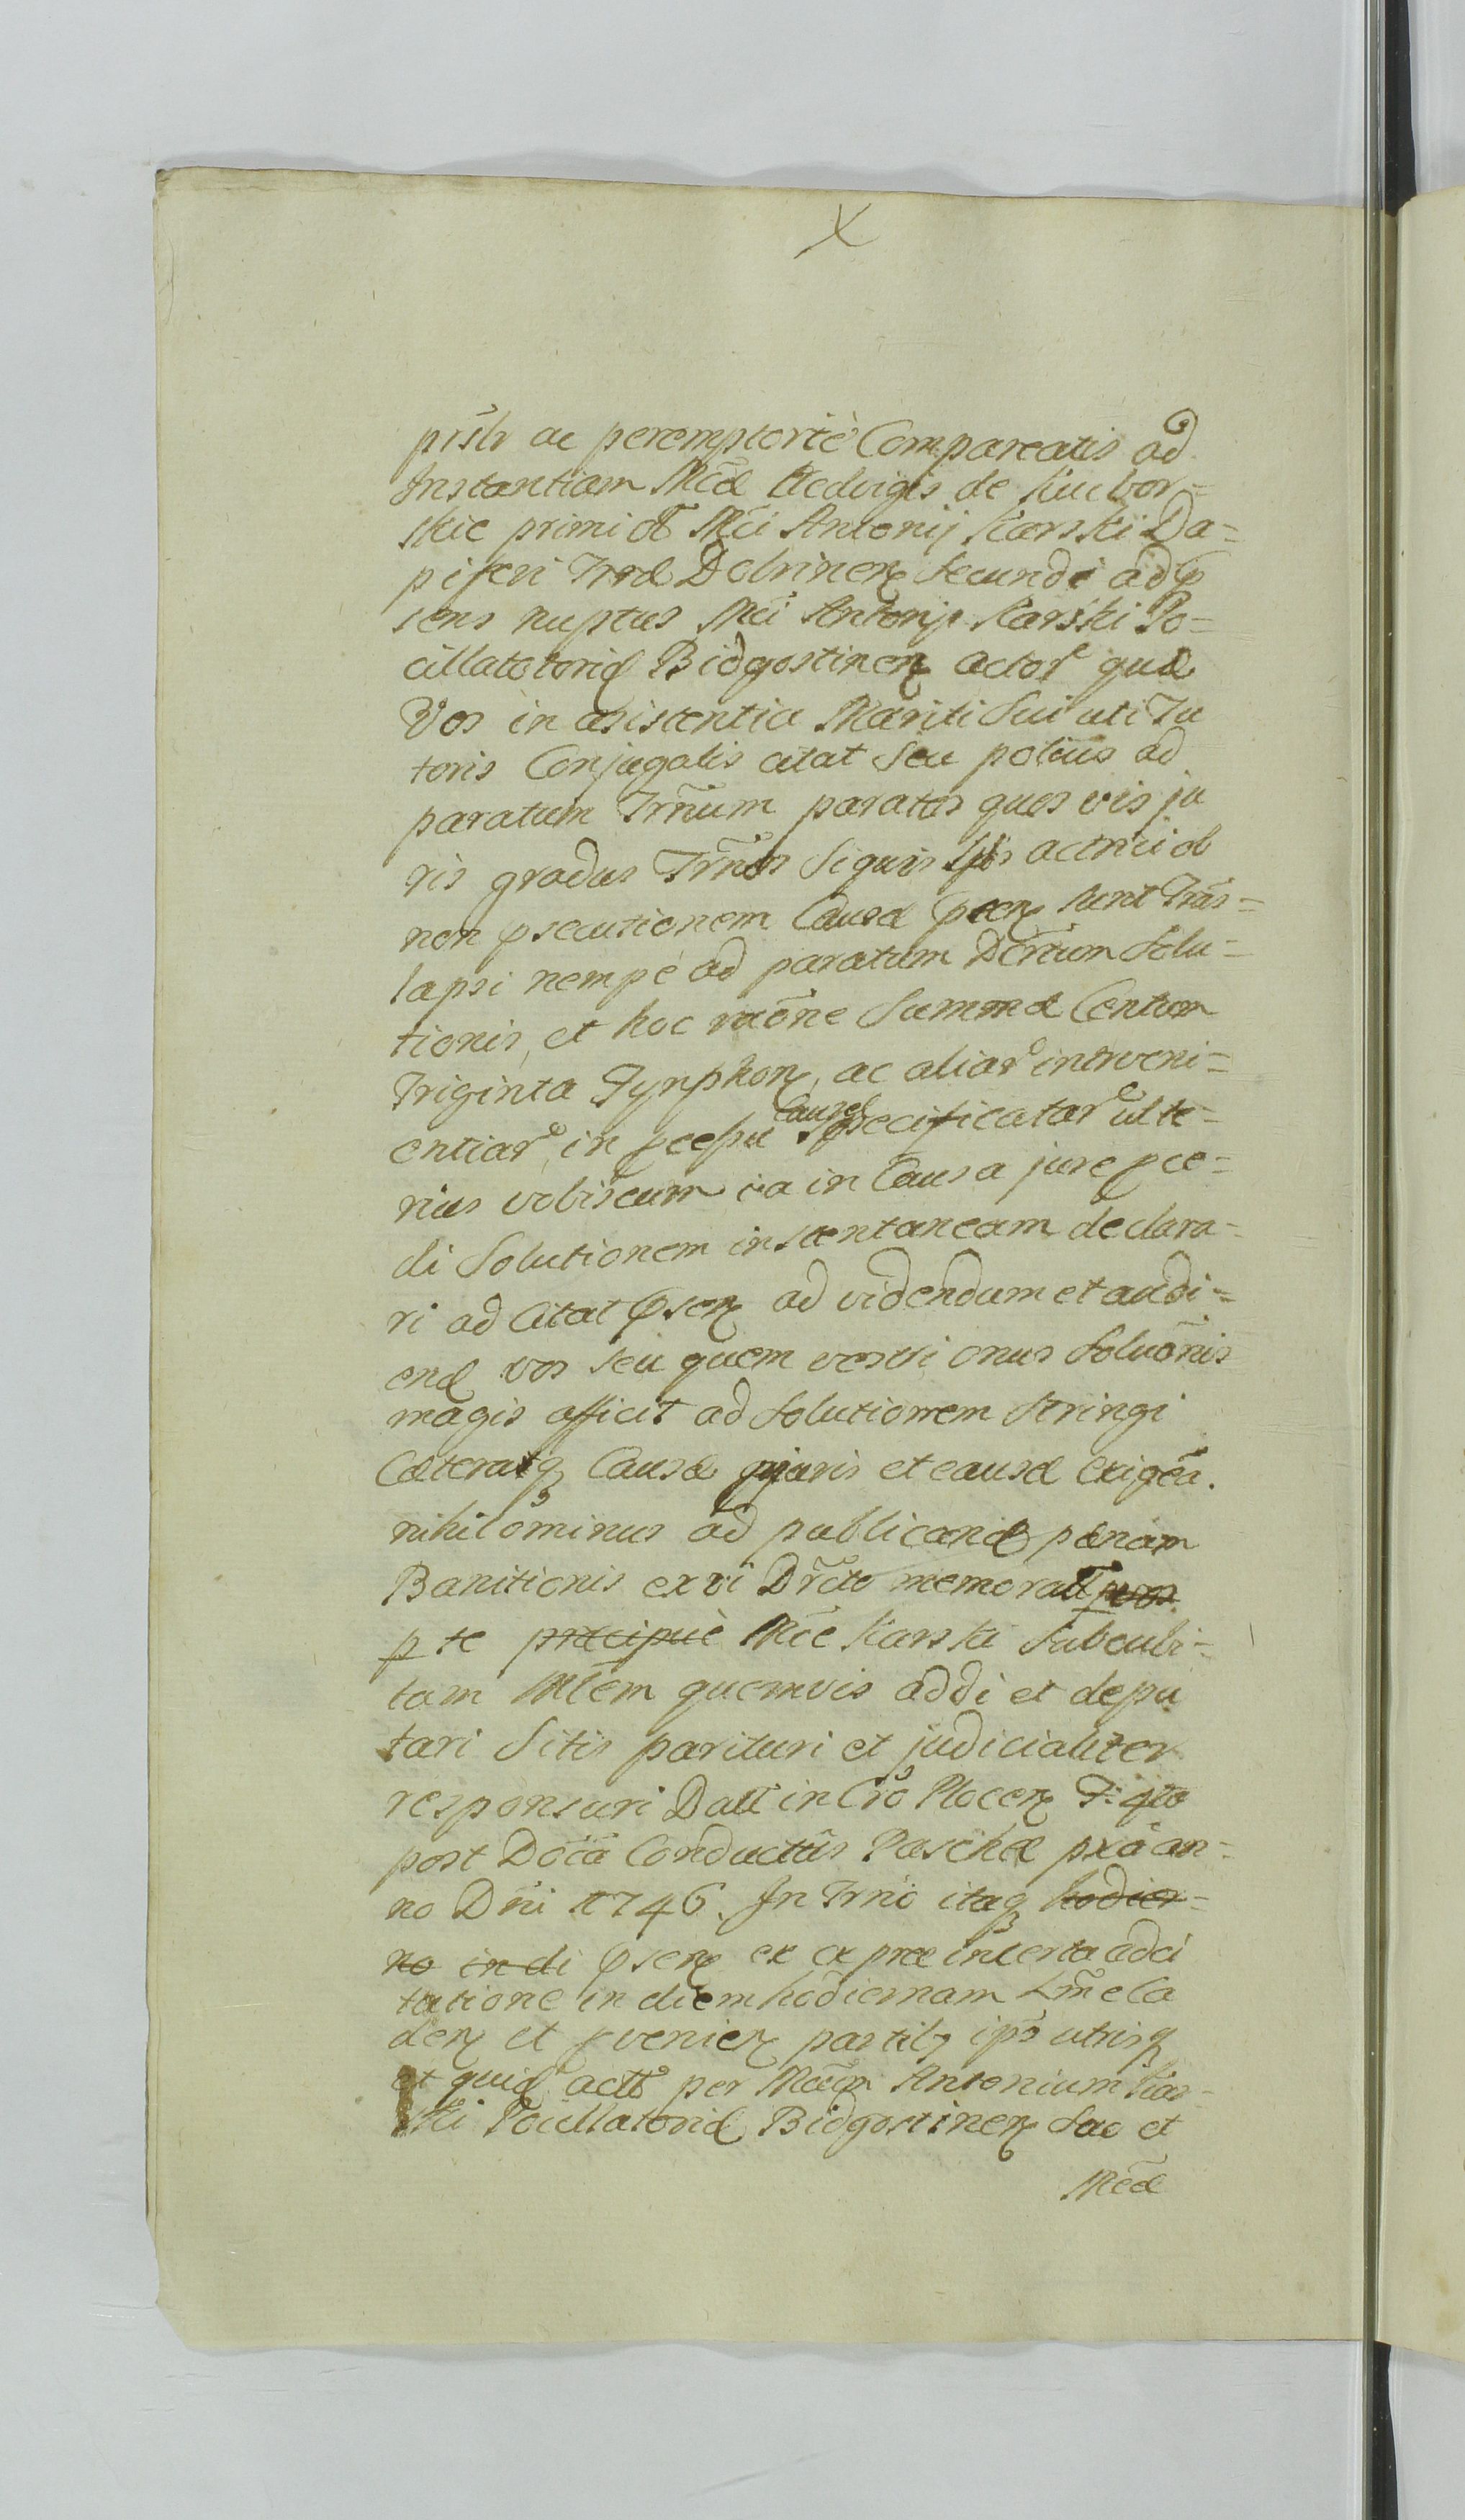 X
prslr ac peremptorie Compareatis ad
Instantiam Mcæ Hedvigis de Kuczbor=
skie primi ott Mci Antonij Karski Da=
piferi Trræ Dobrinen secundi ad p
sens nuptus Mci Antonij Karski Po=
cillatotorid Bidgostinen actor quæ
Vos in asistentia Mariti Sui uti Tu
toris Conjugalis citat Seu potius ad
paratum Trnum paratos quos vis ju
ris gradus Trnos Siquis Ipsis actrici ob
non psecutionem Causæ pcen sunt Trās=
lapsi nempè ad paratum Dcrtum Solu=
tionis, et hoc raōne Summæ Centum
Triginta Tynphon, ac aliar interveni=
entiar, in pcessu Causæ specificatar ulte=
rius vobiscum ea in Causa jure pce=
di Solutionem instentaneam declara=
ri ad Citat psen ad videndum et audi=
end vos seu quem vestri onus Soluōnis
magis afficit ad Solutionem stringi
Cæteraq Causæ juris et causæ exigēa.
nihilominus ad publicand pænam
Banitionis ex vi Drcto memoratt pvos
p te præcipuè Mce Karski Subcubi=
tam Mlem quemvis addi et depu
tari Sitis parituri et judicialiter
responsuri Datt in Cro Plocen F: 4to
post Docā Conductūs Paschæ pxa an=
no Dni 1746. In Trno itaq hodier=
no in di psen ex ex præinserta adci
tatione in diem hodiernam Lme Ca
den et pvenien partib, ips utrisq
et quid actt per Mcum Antonium Kar=
ski Pocillatorid Bidgostinen Suo et
Mcæ